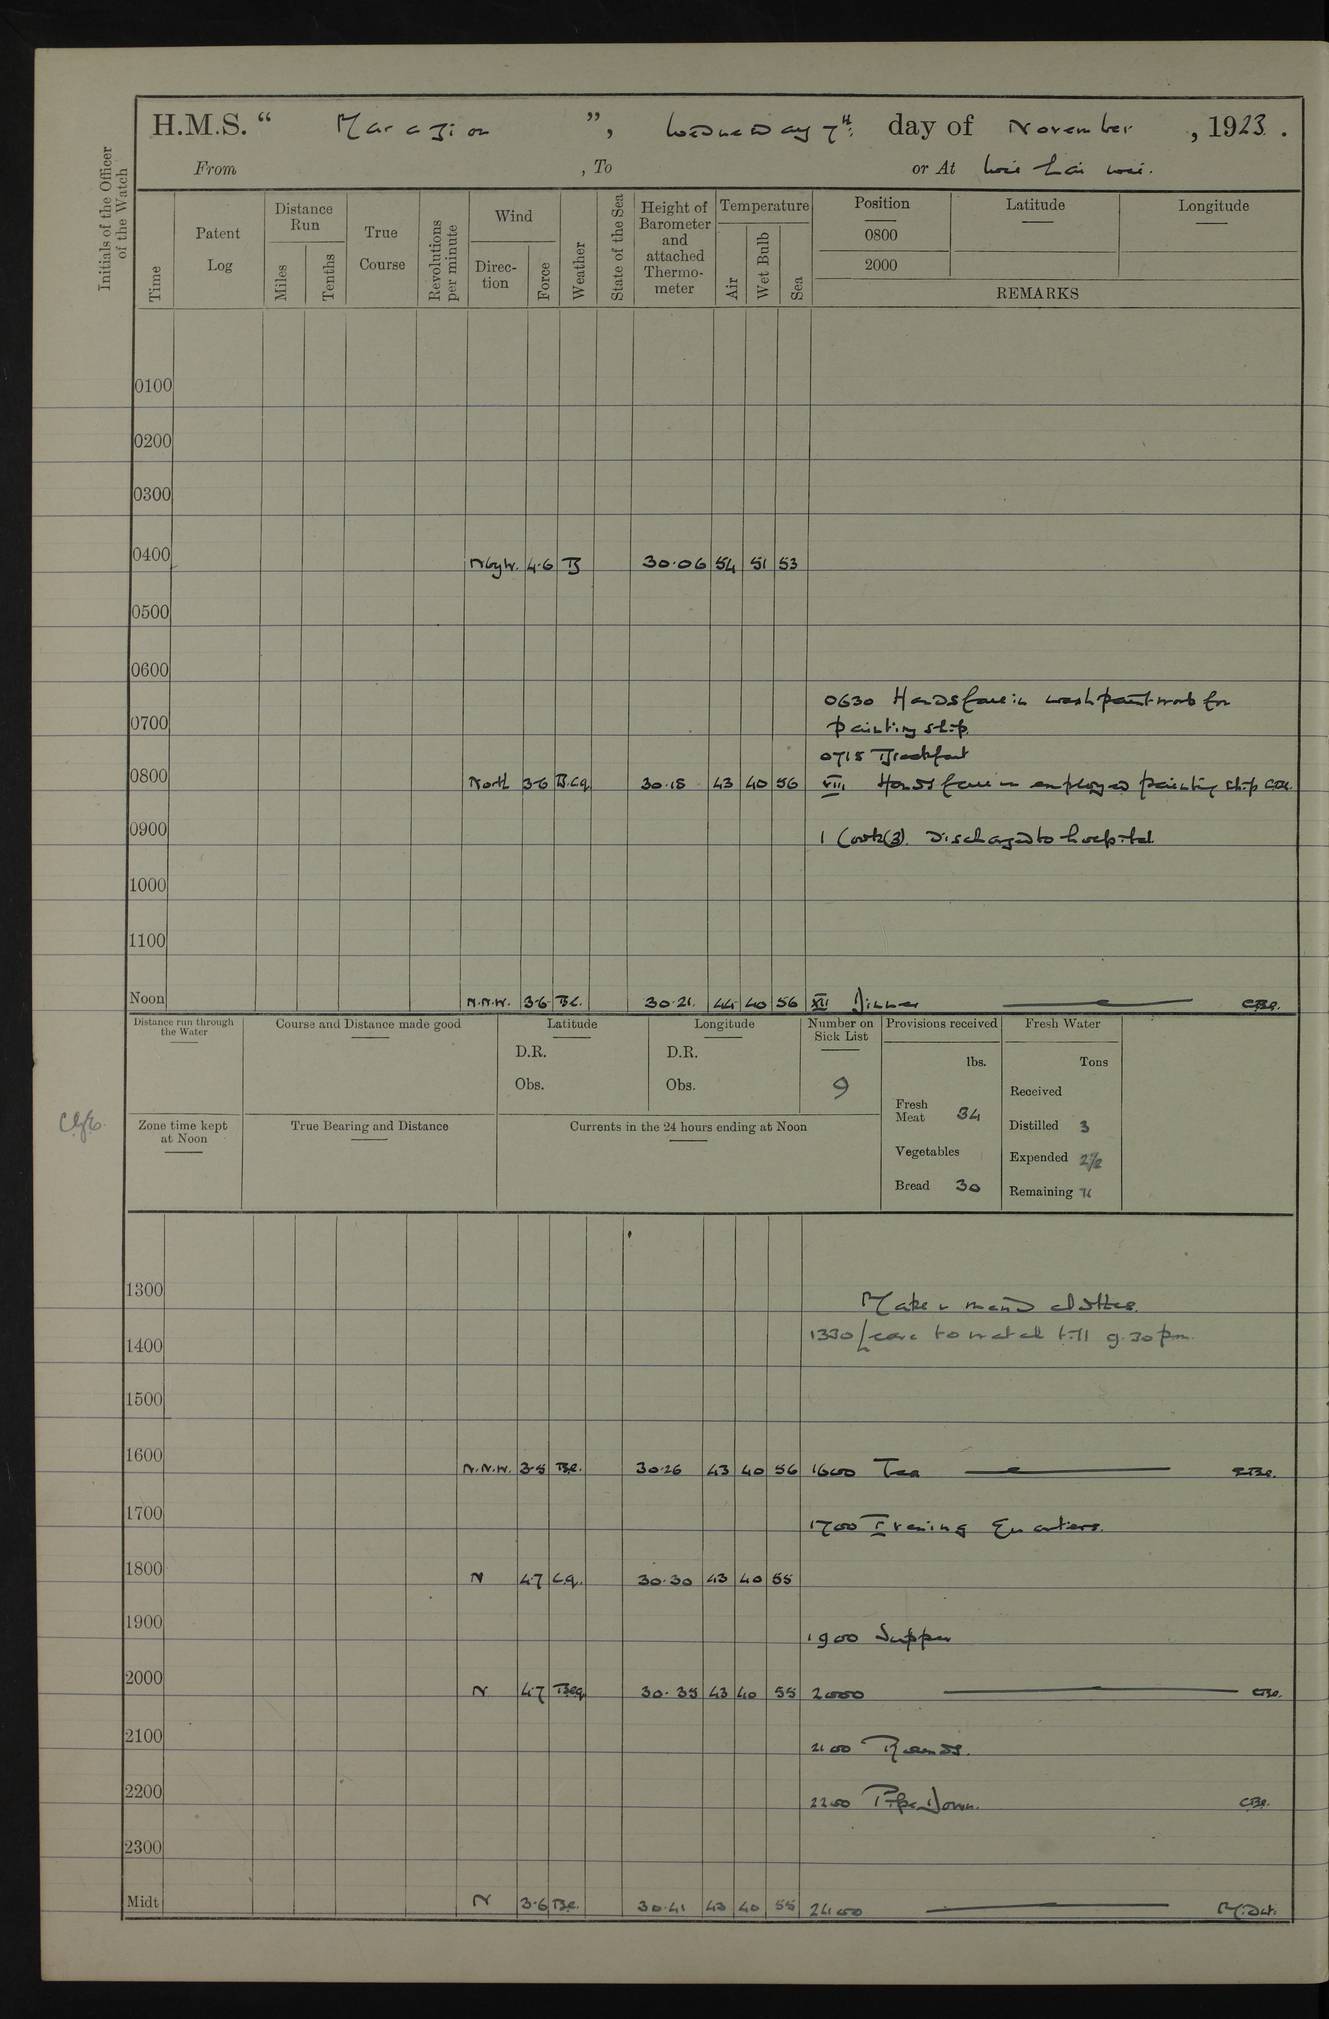 H.M.S. “ Marazion ”, Wednesday 7th: day of November, 1923.
From , To or At Wei hai wei.
Initials of the Officer of the Watch
Time
Patent Log
Distance Run
Miles
Tenths
True Course
Revolutions per minute
Wind
Direc-tion
Force
Weather
State of the Sea
Height of Barometer and attached Thermo-meter
Temperature
Air
Wet Bulb
Sea
Position
0800
2000
Latitude
Longitude
REMARKS
0100
0200
0300
0400 N by W. 4-6 B 30.06 54 51 53
0500
0600
0630 Hands fall in wash paintwork for
0700 painting ship.
0715 Breakfast
0800 North 3-6 B.C.q. 30.18 43 40 56 VIII Hands fall in employed painting ship
0900 1 Cook(3). Discharged to hospital.
1000
1100
Noon N.N.W. 3-6 B.C. 30.21. 44 40 56 XII Dinner
Distance run through the Water
Course and Distance made good
Latitude
D.R.
Obs.
Longitude
D.R.
Obs.
Number on Sick List
9
Provisions received
lbs.
Fresh Meat 34
Vegetables
Bread 30
Fresh Water
Tons
Received
Distilled 3
Expended 2½
Remaining
Zone time kept at Noon
True Bearing and Distance
Currents in the 24 hours ending at Noon
1300 Make & mend clothes.
1330 Leave to watch till 9.30 pm.
1400
1500
1600 N.N.W. 3-5 B.C. 30.26 43 40 56 1600 Tea
1700 1700 Evening Quarters.
1800 N 4-7 C.q. 30.30 43 40 55
1900 1900 Supper
2000 N 4-7 B.C.q. 30.35 43 40 55 2000
2100 2100 Rounds.
2200 2200 Pipe Down.
2300
Midt N 3-6 B.C. 30.41 43 40 55 2400